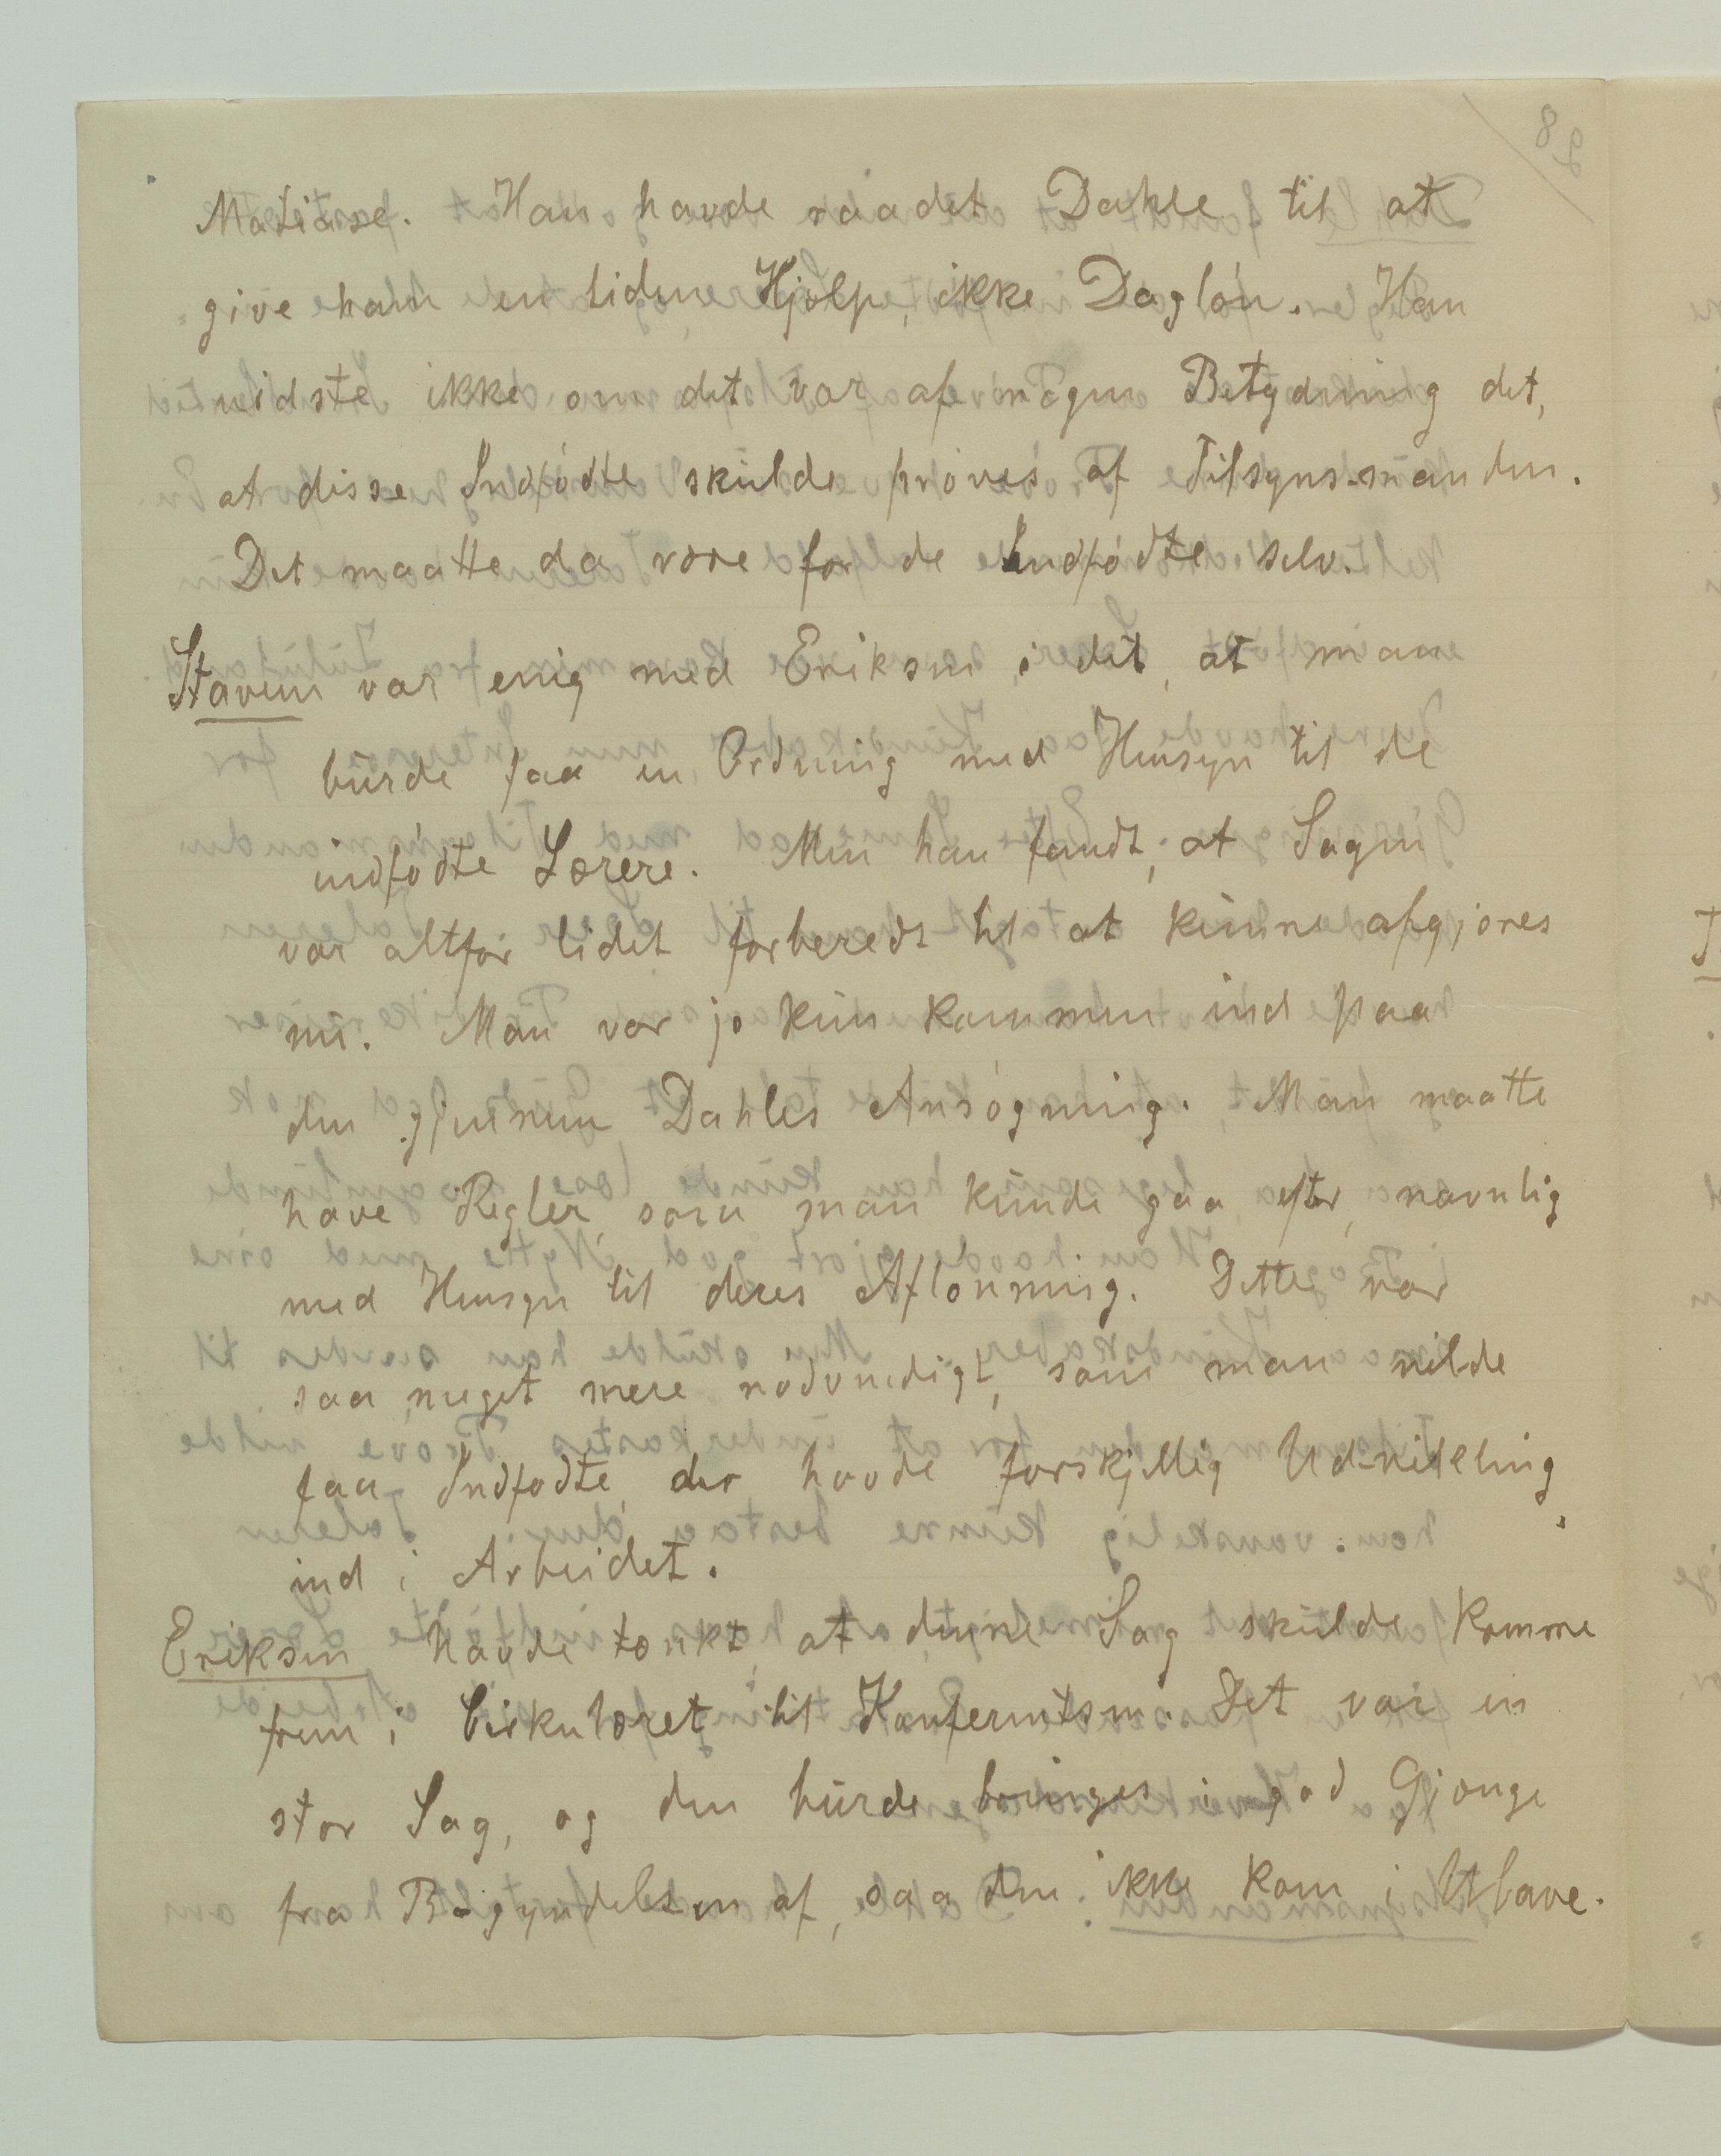 Matiase. Han havde raadet Dahle til at
give ham en liden Hjælp, ikke Dagløn. Han
vidste ikke om det var af nogen Betydning det,
at disse Indfødte skulde prøves af Tilsyns-manden.
Det maatte da være for de Indfødte selv.
Stavem var enig med Eriksen i det, at man
burde faa en Ordning med Hensyn til de
indfødte Lærere. Men han fandt, at Sagen
var altfor lidet forberedt til at kunne afgjøres
nu. Man var jo kun kommen ind paa
den gjennem Dahles Ansøgning. Man maatte
have Regler, som man kunde gaa efter, navnlig
med Hensyn til deres Aflønning. Dette var
saa meget mere nødvendigt, som man vilde
faa Indfødte, der havde forskjellig Udvikling,
ind i Arbeidet.
Eriksen havde tænkt, at denne Sag skulde komme
frem i Cirkulæret til Konferentsen. Det var en
stor Sag, og den burde bringes i god Gjænge
fra Begyndelsen af, saa den ikke kom i Ulave.